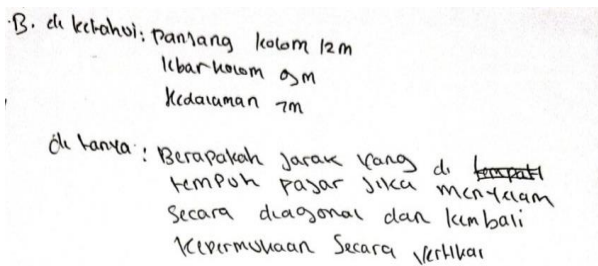 B. di ketahui: Panjang kolom 12m
lebar kolom 9m
Kedalaman 7m
di tanya: Berapakah Jarak yang di
tempuh pajar Jika menyelam
Secara diagonal dan kembali
Kepermukaan Secara Vertikal